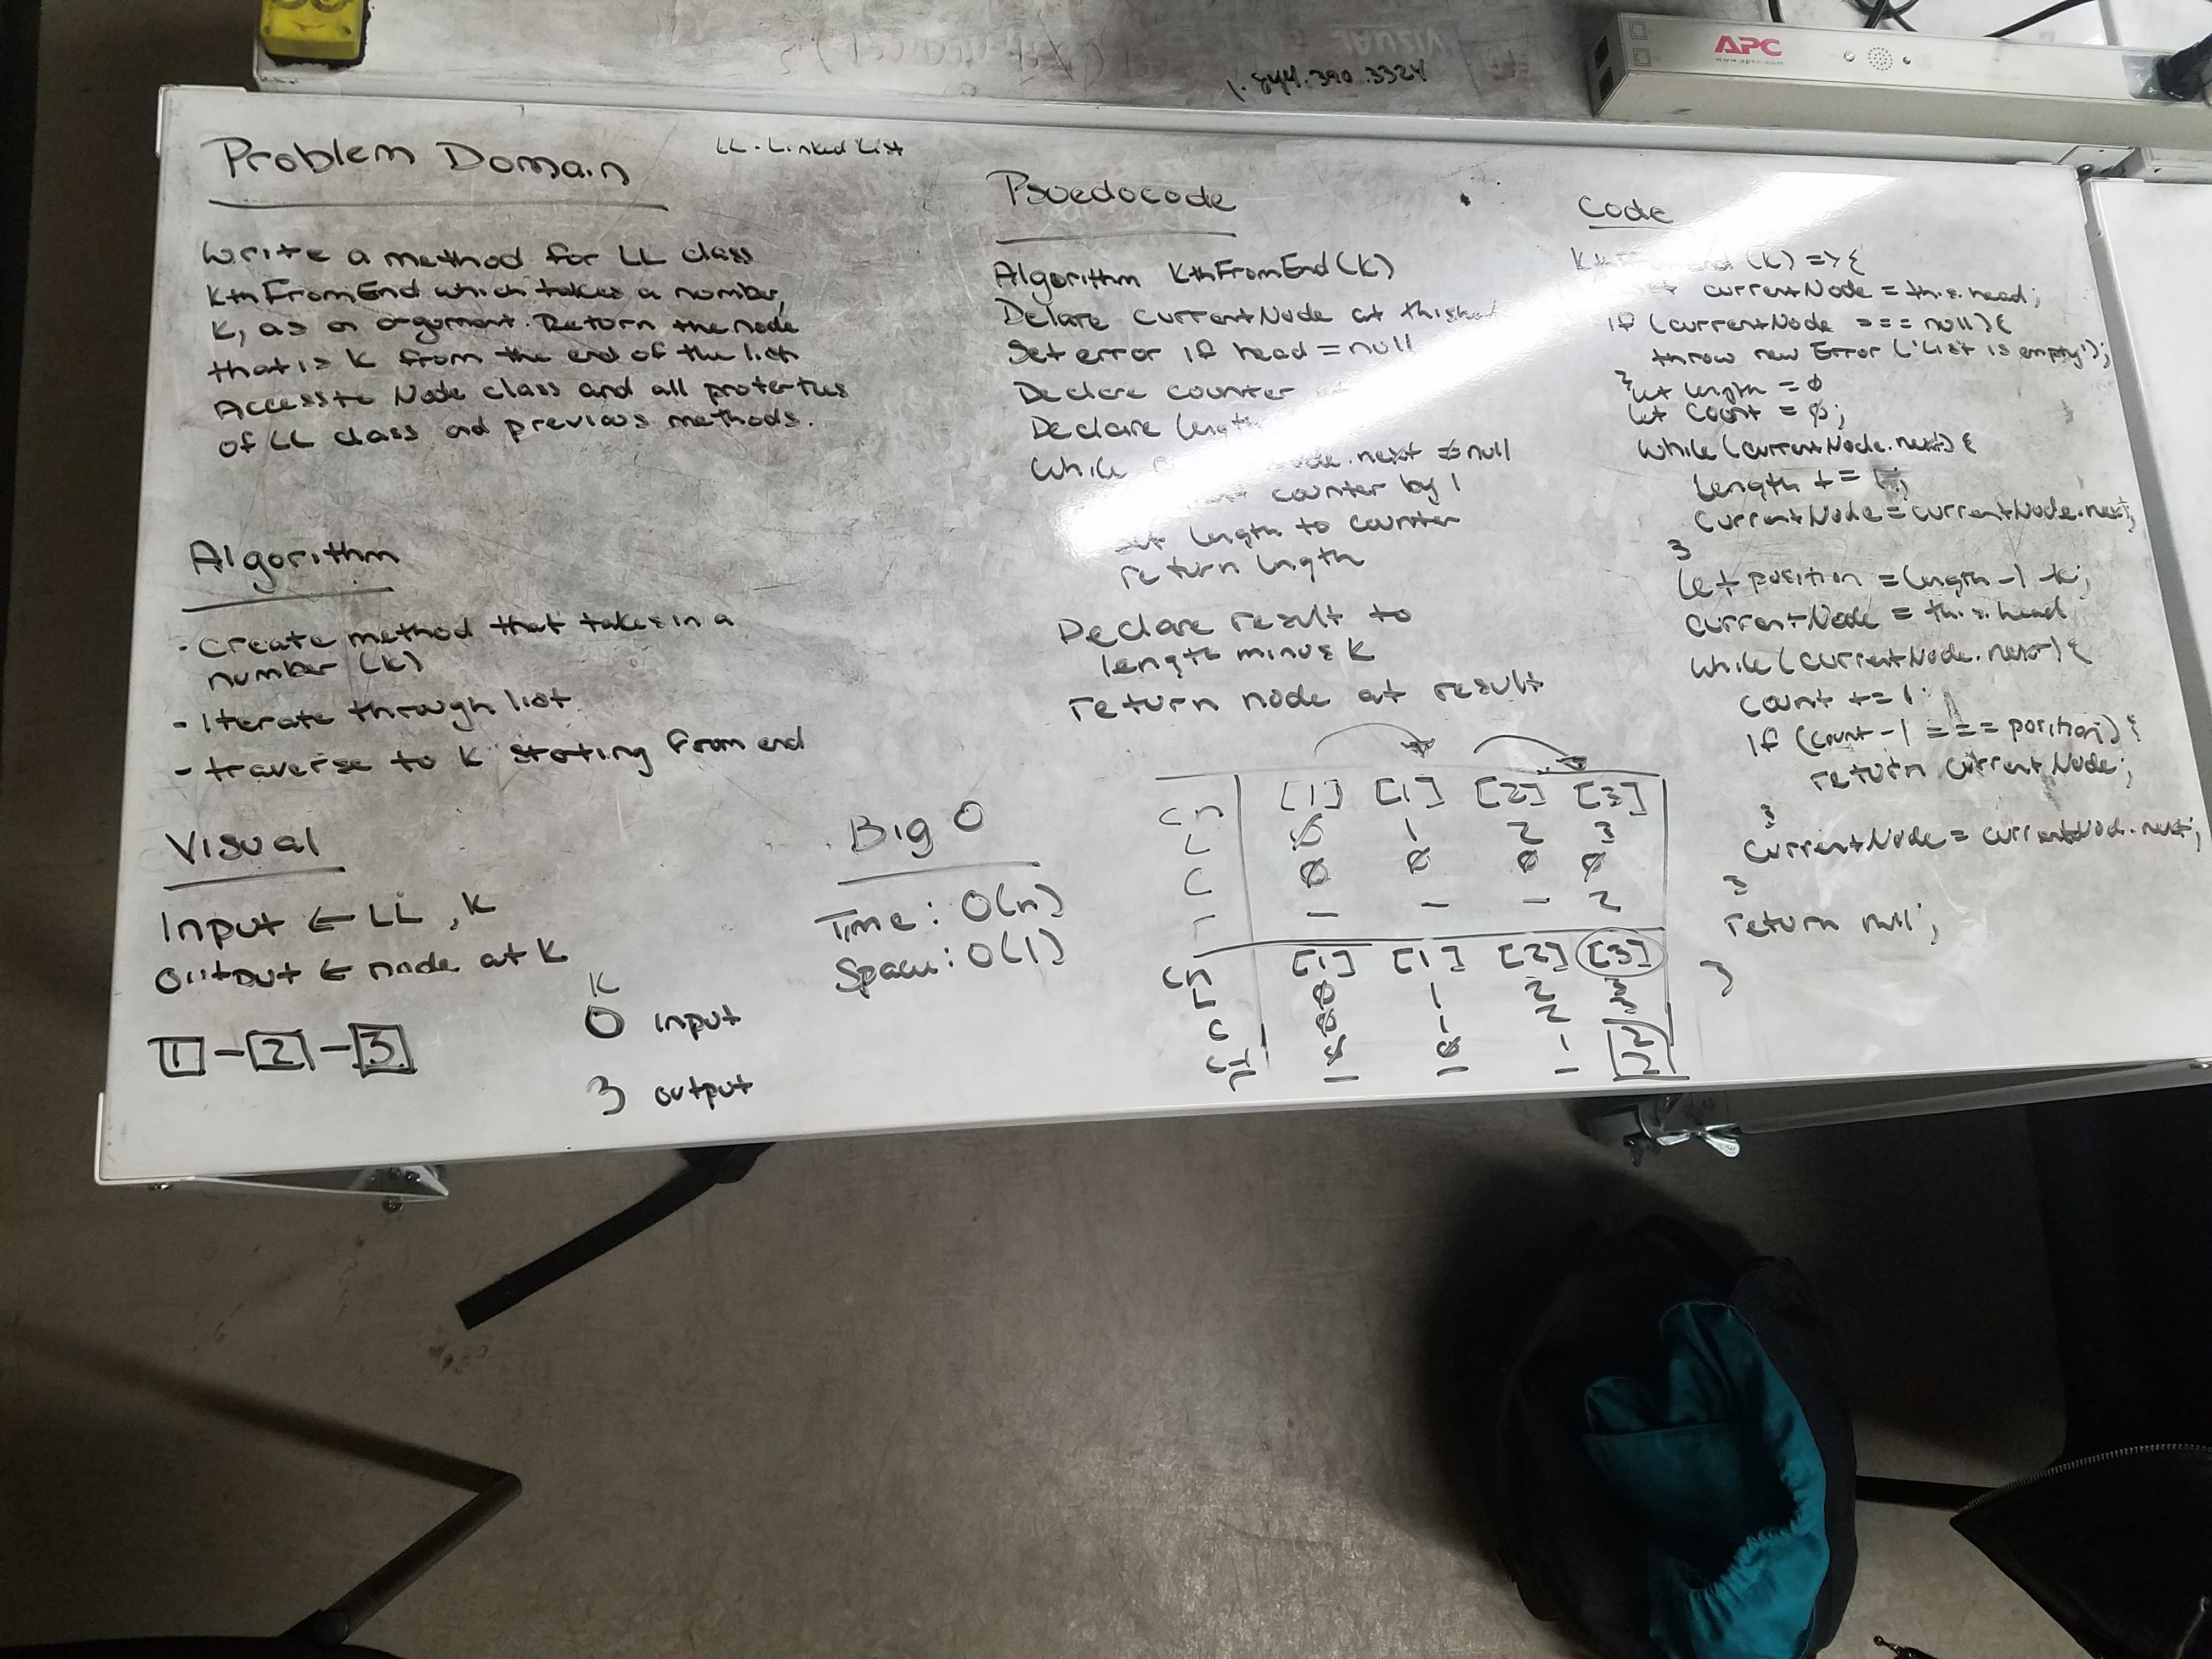 1.844.390.3324
APC
www.apcc.com
Problem Domain
LL - Linked List
Write a method for LL class
KthFromEnd which takes a number,
K, as an argument. Return the node
that is K from the end of the list
Access to Node class and all properties
of LL class and previous methods.
Algorithm
- Create method that takes in a
number (K)
- Iterate through list
- traverse to K starting from end
Visual
Input ← LL, K
Output ← node at K
[1] - [2] - [3]
K
0 input
3 output
Big O
Time: O(n)
Space: O(1)
Psuedocode
Algorithm KthFromEnd(K)
Delare currentNode at this
Set error if head = null
Declare counter
Declare length
While .next ≠ null
counter by 1
Set length to counter
return length
Declare result to
length minus K
return node at result
Cn [1] [1] [2] [3]
L 0 1 2 3
C 0 0 0 0
r - - - 2
Cn [1] [1] [2] [3]
L 0 1 2 3
C 0 1 2
Code
(K) => {
currentNode = this.head;
if (currentNode === null) {
throw new Error ('List is empty');
}
let length = 0
let count = 0;
while (currentNode.next) {
length += 1;
currentNode = currentNode.next;
}
let position = length - 1 - k;
currentNode = this.head
while (currentNode.next) {
count += 1;
if (count - 1 === position) {
return currentNode;
}
currentNode = currentNod.next;
}
return null;
}